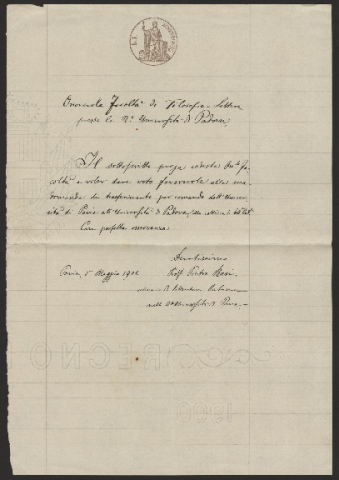 Onorevole Facoltà di Filosofia e Lettere
presso la R.a Università di Padova,
Il sottoscritto prega codesta On.le Fa-
coltà a voler dare voto favorevole alla sua
domanda di trasferimento per comando dall'Univer-
sità di Pavia all'Università di Padova,
Con perfetta osservanza
Devotissimo
Pavia, 5 Maggio 1902
Prof. Pietro Rasi,
di Letteratura Latina
nella R.a Università di Pavia.
REGNO
1900